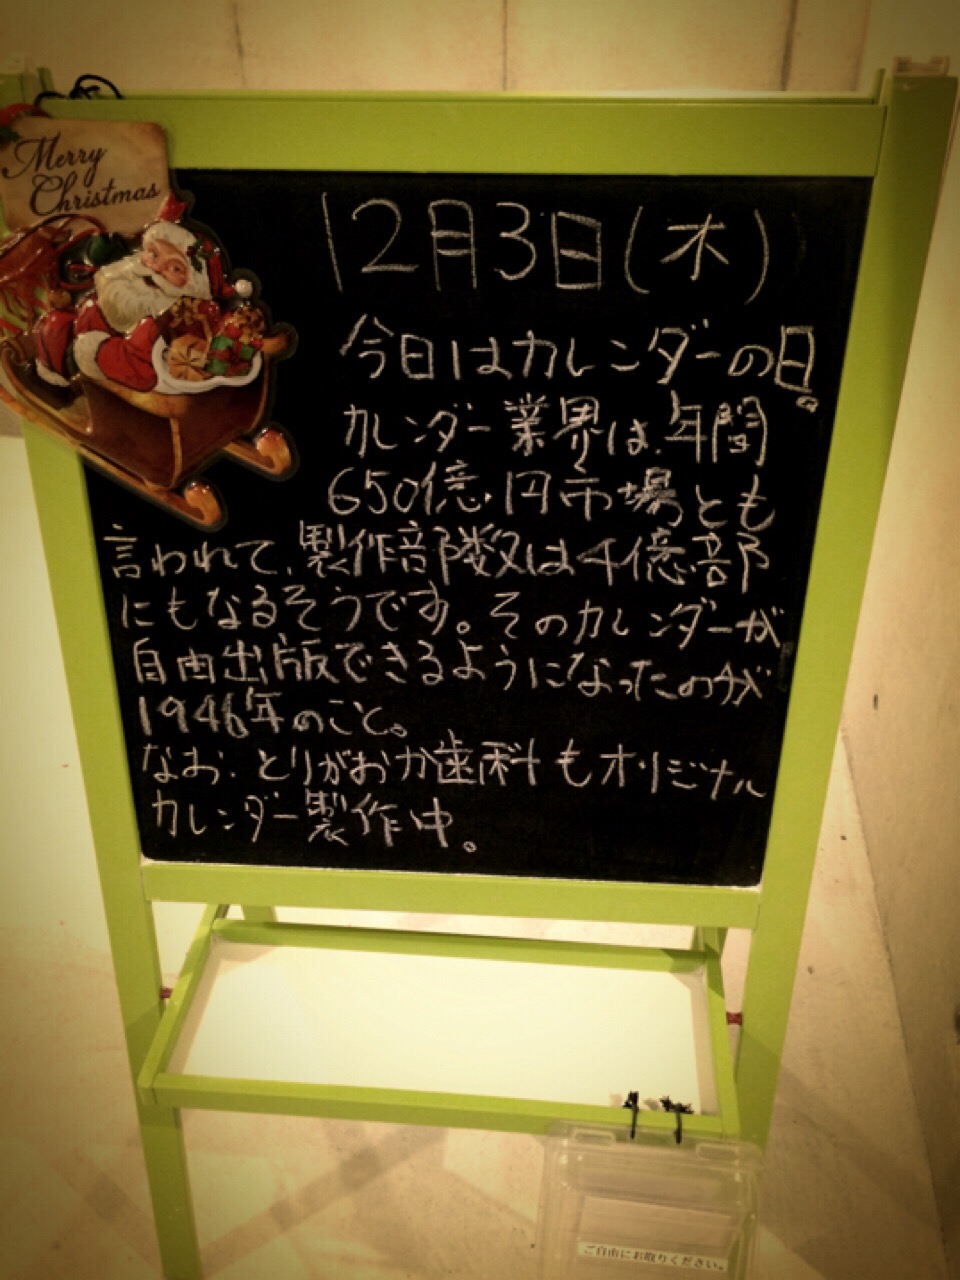 Merry
Christmas
12月3日(木)
今日はカレンダーの日。
カレンダー業界は、年間
650億円市場とも
言われて、製作部数は千億部
にもなるそうです。そのカレンダーが
自由出版できるようになったのが
1946年のこと。
なお、とりがおか歯科もオリジナル
カレンダー製作中。
ご自由にお取りください。